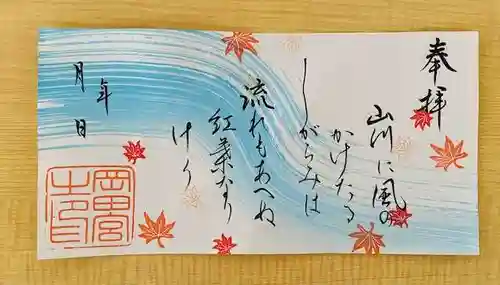 奉拝
山川に風の
かけたる
しがらみは
流れもあへぬ
紅葉なり
けり
年
月 日
岡田宮
之印